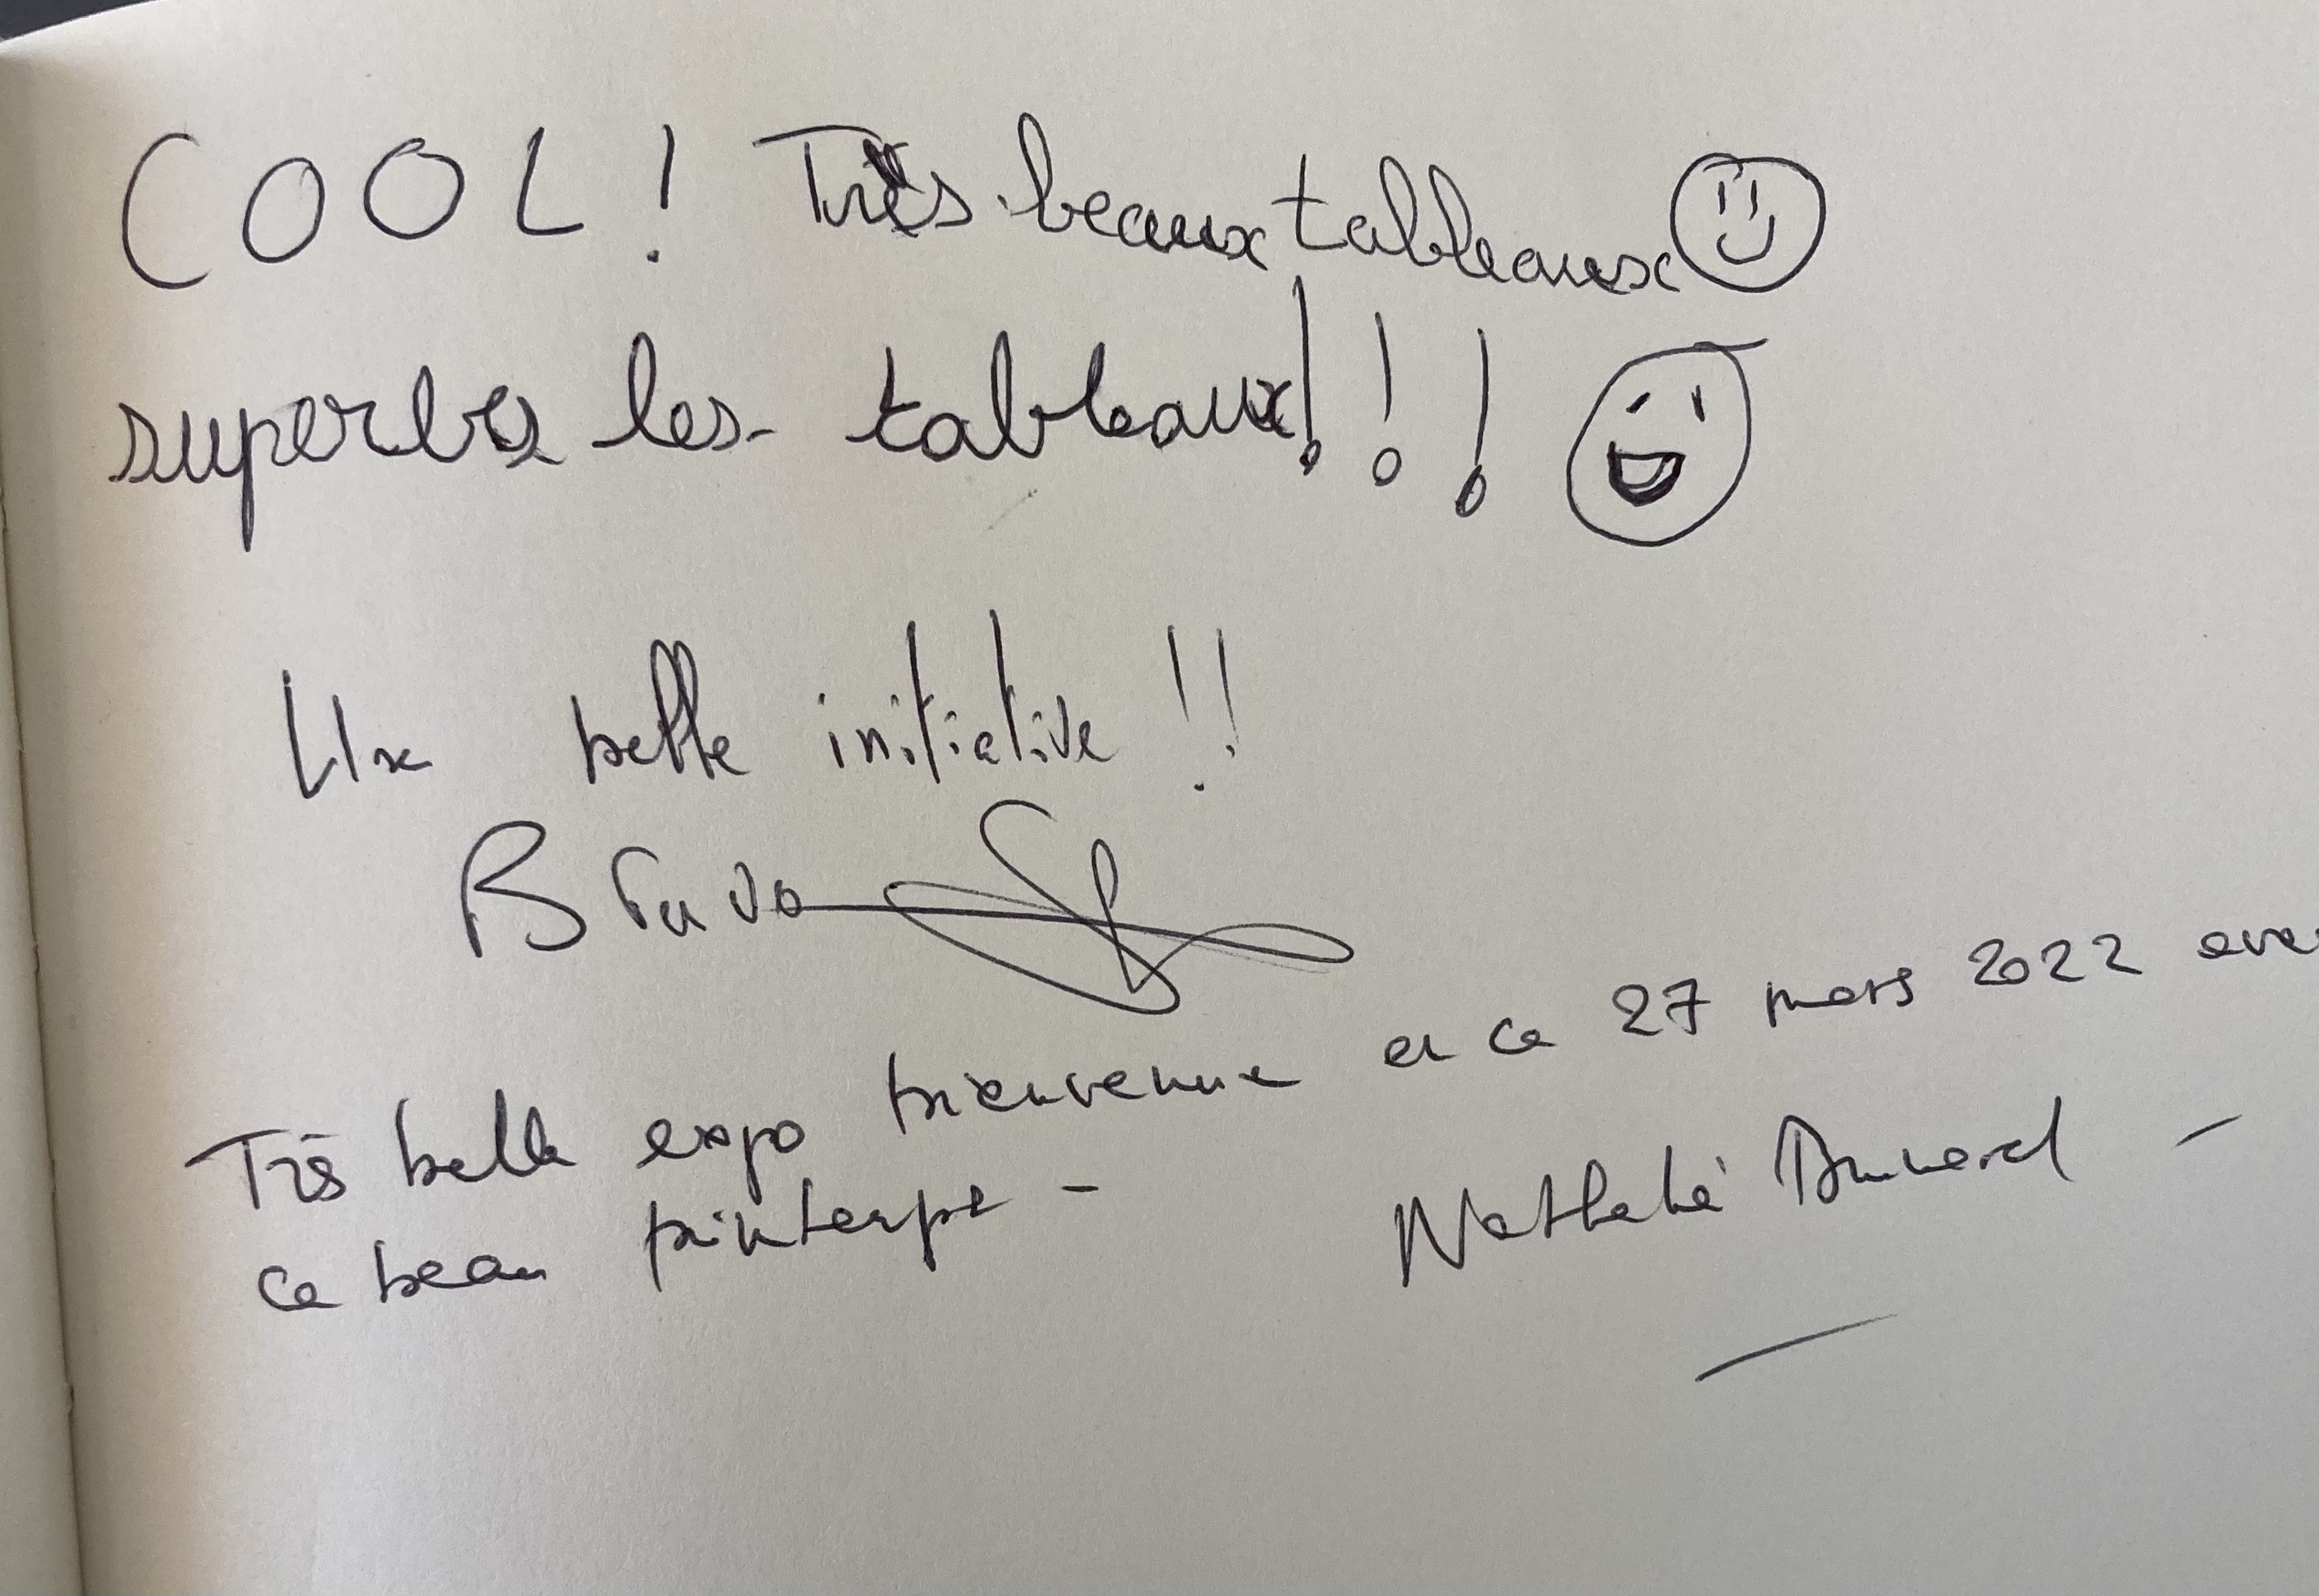 COOL ! Très beaux tableaux
superbes les tableaux!!!
Une belle initiative !!
Bravo
Très belle expo bienvenue en ce 27 mars 2022 avec
ce beau printemps -
Nathalie